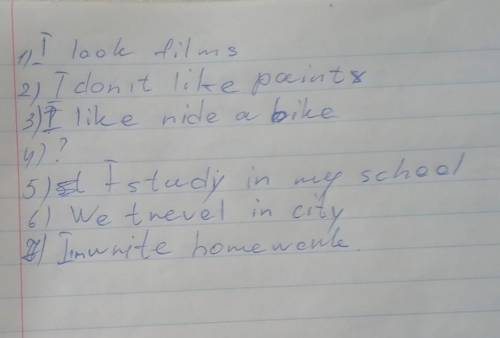 1) I look films
2) I don't like paints
3) I like ride a bike
4) ?
5) I study in my school
6) We trevel in city
7) Im write homework